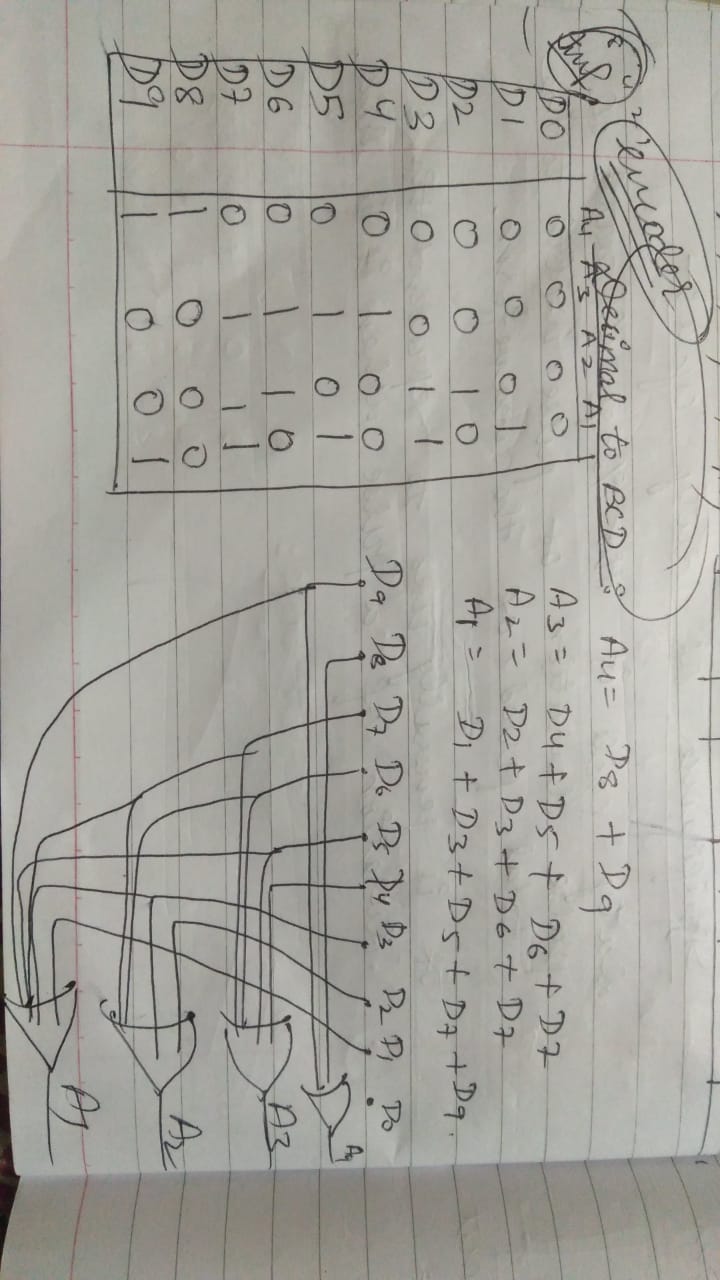 Encoder
Decimal to BCD :
A4 A3 A2 A1
D0 0 0 0 0
D1 0 0 0 1
D2 0 0 1 0
D3 0 0 1 1
D4 0 1 0 0
D5 0 1 0 1
D6 0 1 1 0
D7 0 1 1 1
D8 1 0 0 0
D9 1 0 0 1
A4 = D8 + D9
A3 = D4 + D5 + D6 + D7
A2 = D2 + D3 + D6 + D7
A1 = D1 + D3 + D5 + D7 + D9.
D9 D8 D7 D6 D5 D4 D3 D2 D1 D0
A4
A3
A2
A1